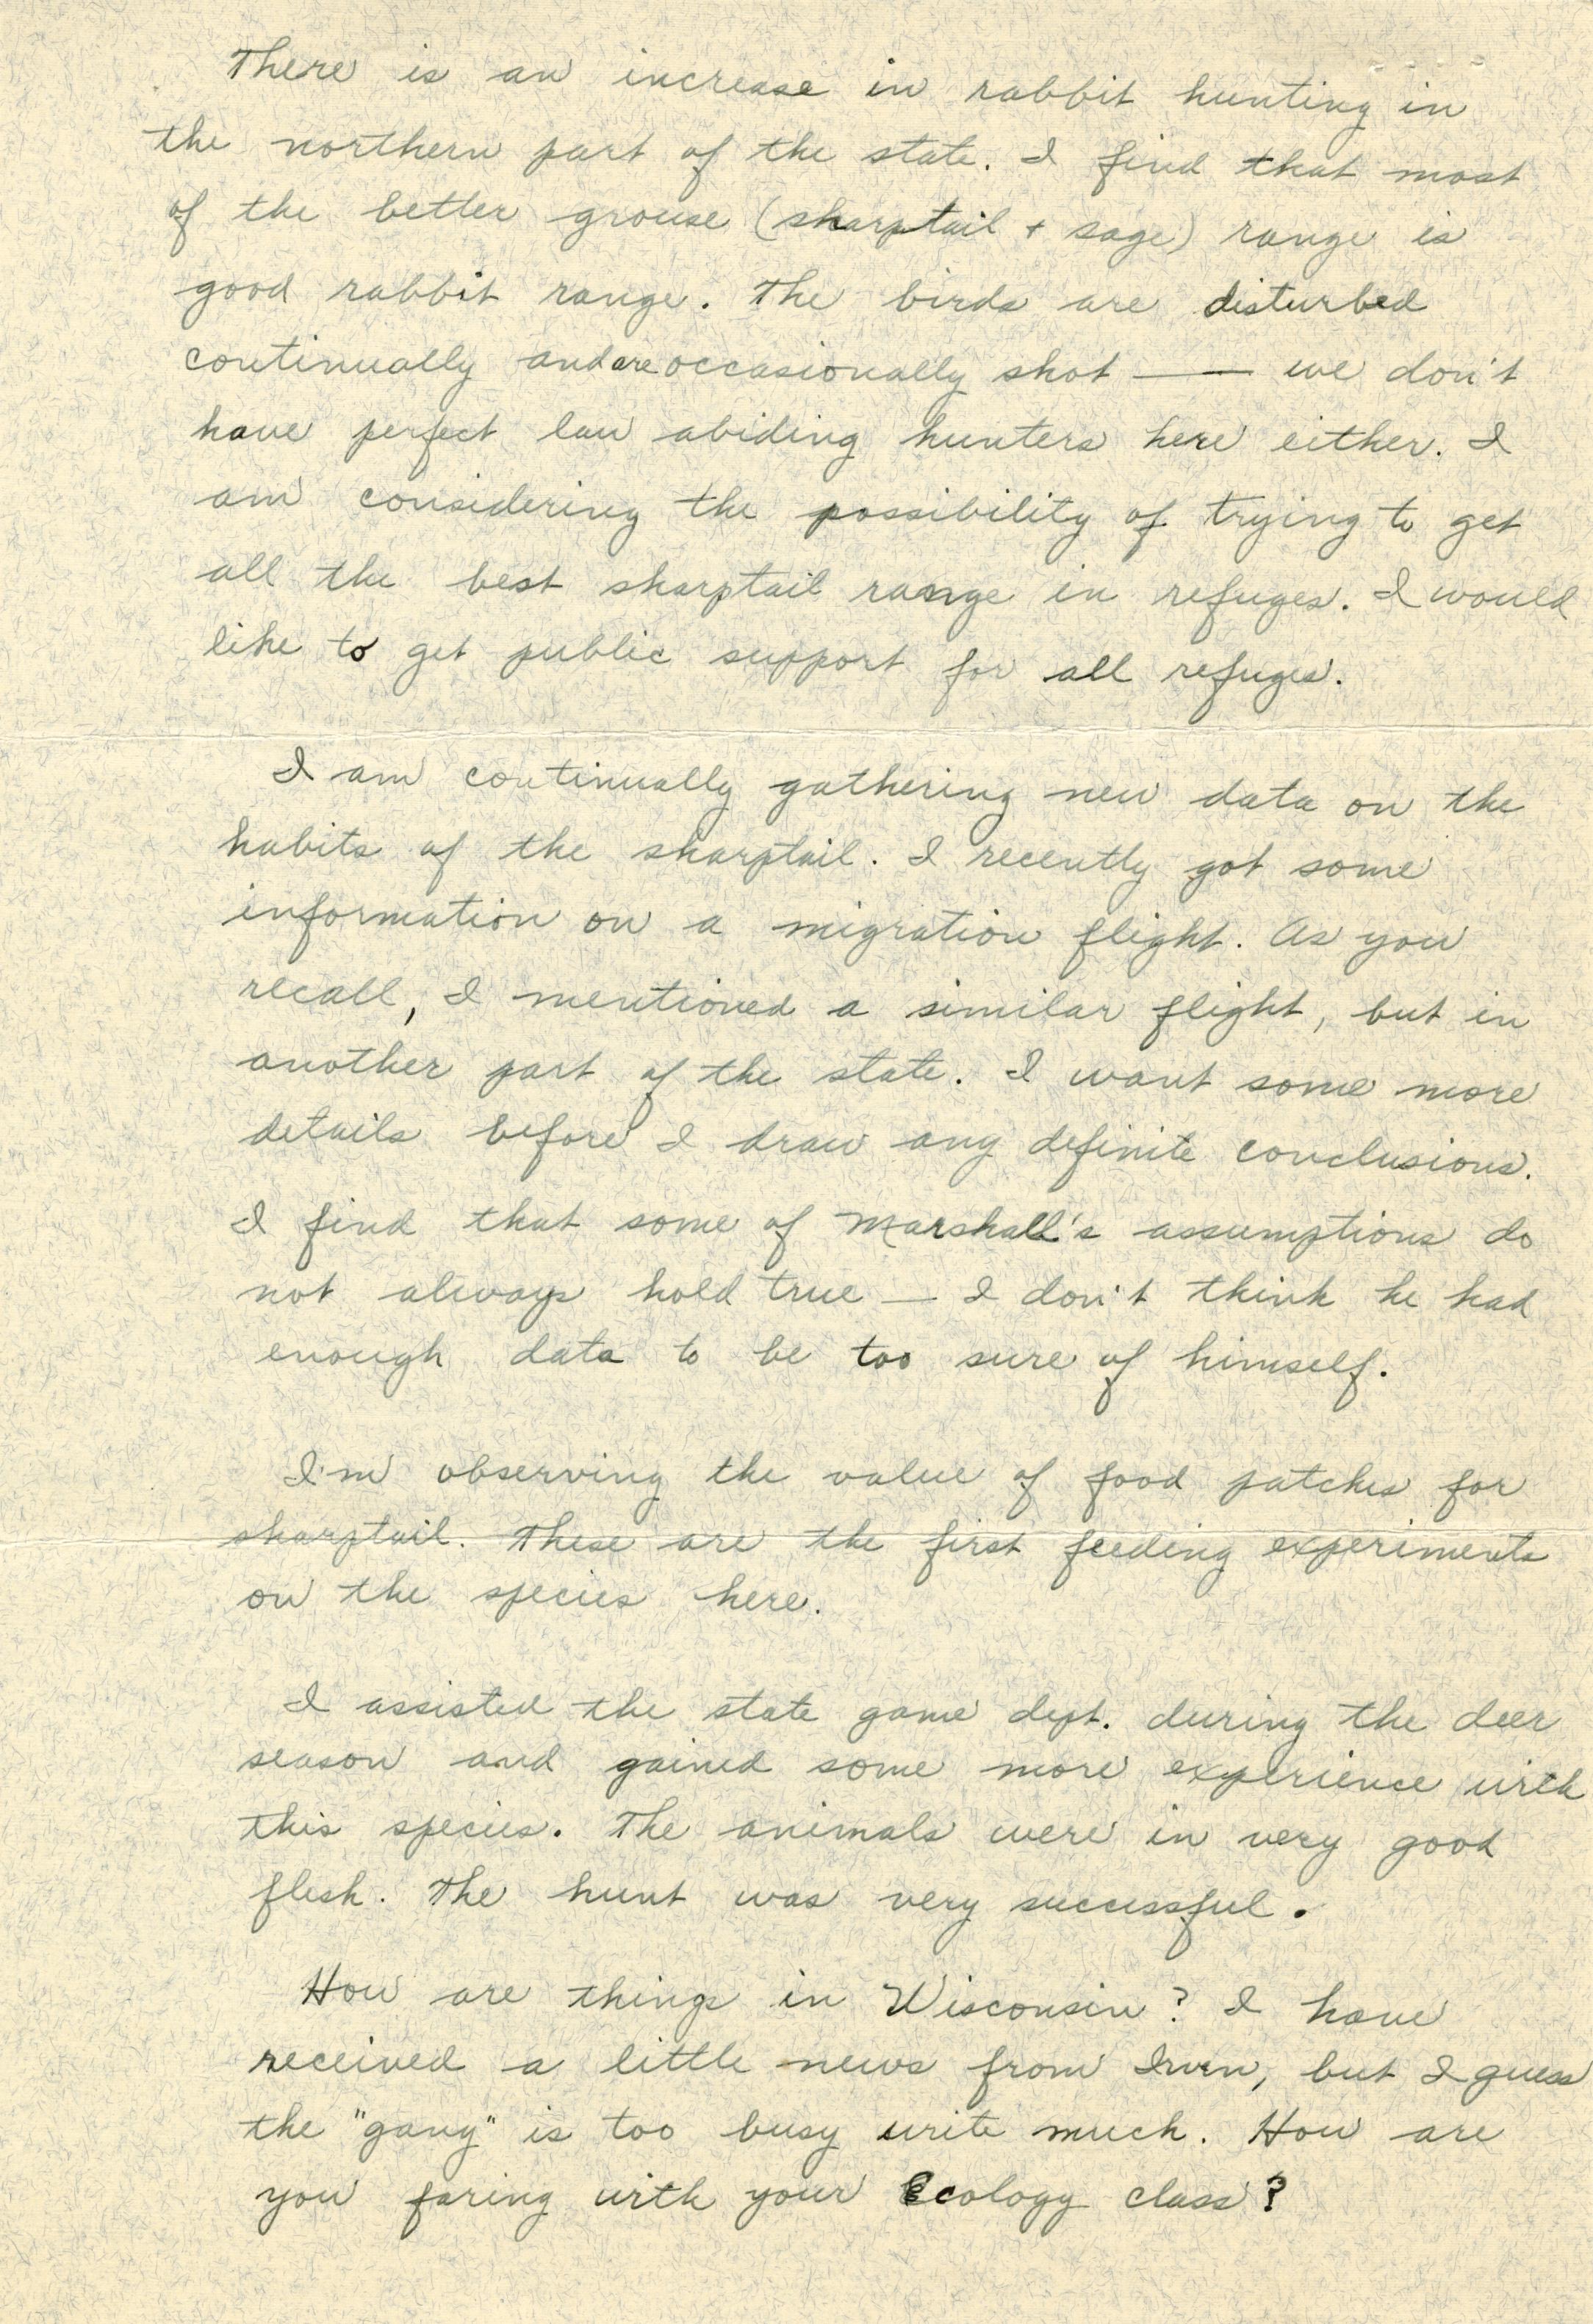 There is an increase in rabbit hunting in
the northern part of the state. I find that most
of the better grouse (sharptail + sage) range is
good rabbit range. The birds are disturbed
continually and are occasionally shot —— we don't
have perfect law abiding hunters here either. I
am considering the possibility of trying to get
all the best sharptail range in refuges. I would
like to get public support for all refuges.
I am continually gathering new data on the
habits of the sharptail. I recently got some
information on a migration flight. As you
recall, I mentioned a similar flight, but in
another part of the state. I want some more
details before I draw any definite conclusions.
I find that some of Marshall's assumptions do
not always hold true — I don't think he had
enough data to be too sure of himself.
I'm observing the value of food patches for
sharptail. These are the first feeding experiments
on the species here.
I assisted the state game dept. during the deer
season and gained some more experience with
this species. The animals were in very good
flesh. The hunt was very successful.
How are things in Wisconsin? I have
received a little news from Irven, but I guess
the "gang" is too busy write much. How are
you faring with your Ecology class?